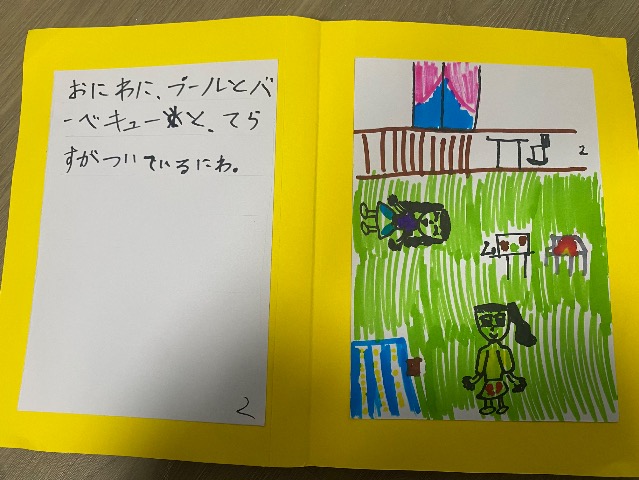 おにわに、プールとバ
ーベキューと、てら
すがついているにわ。
2
2